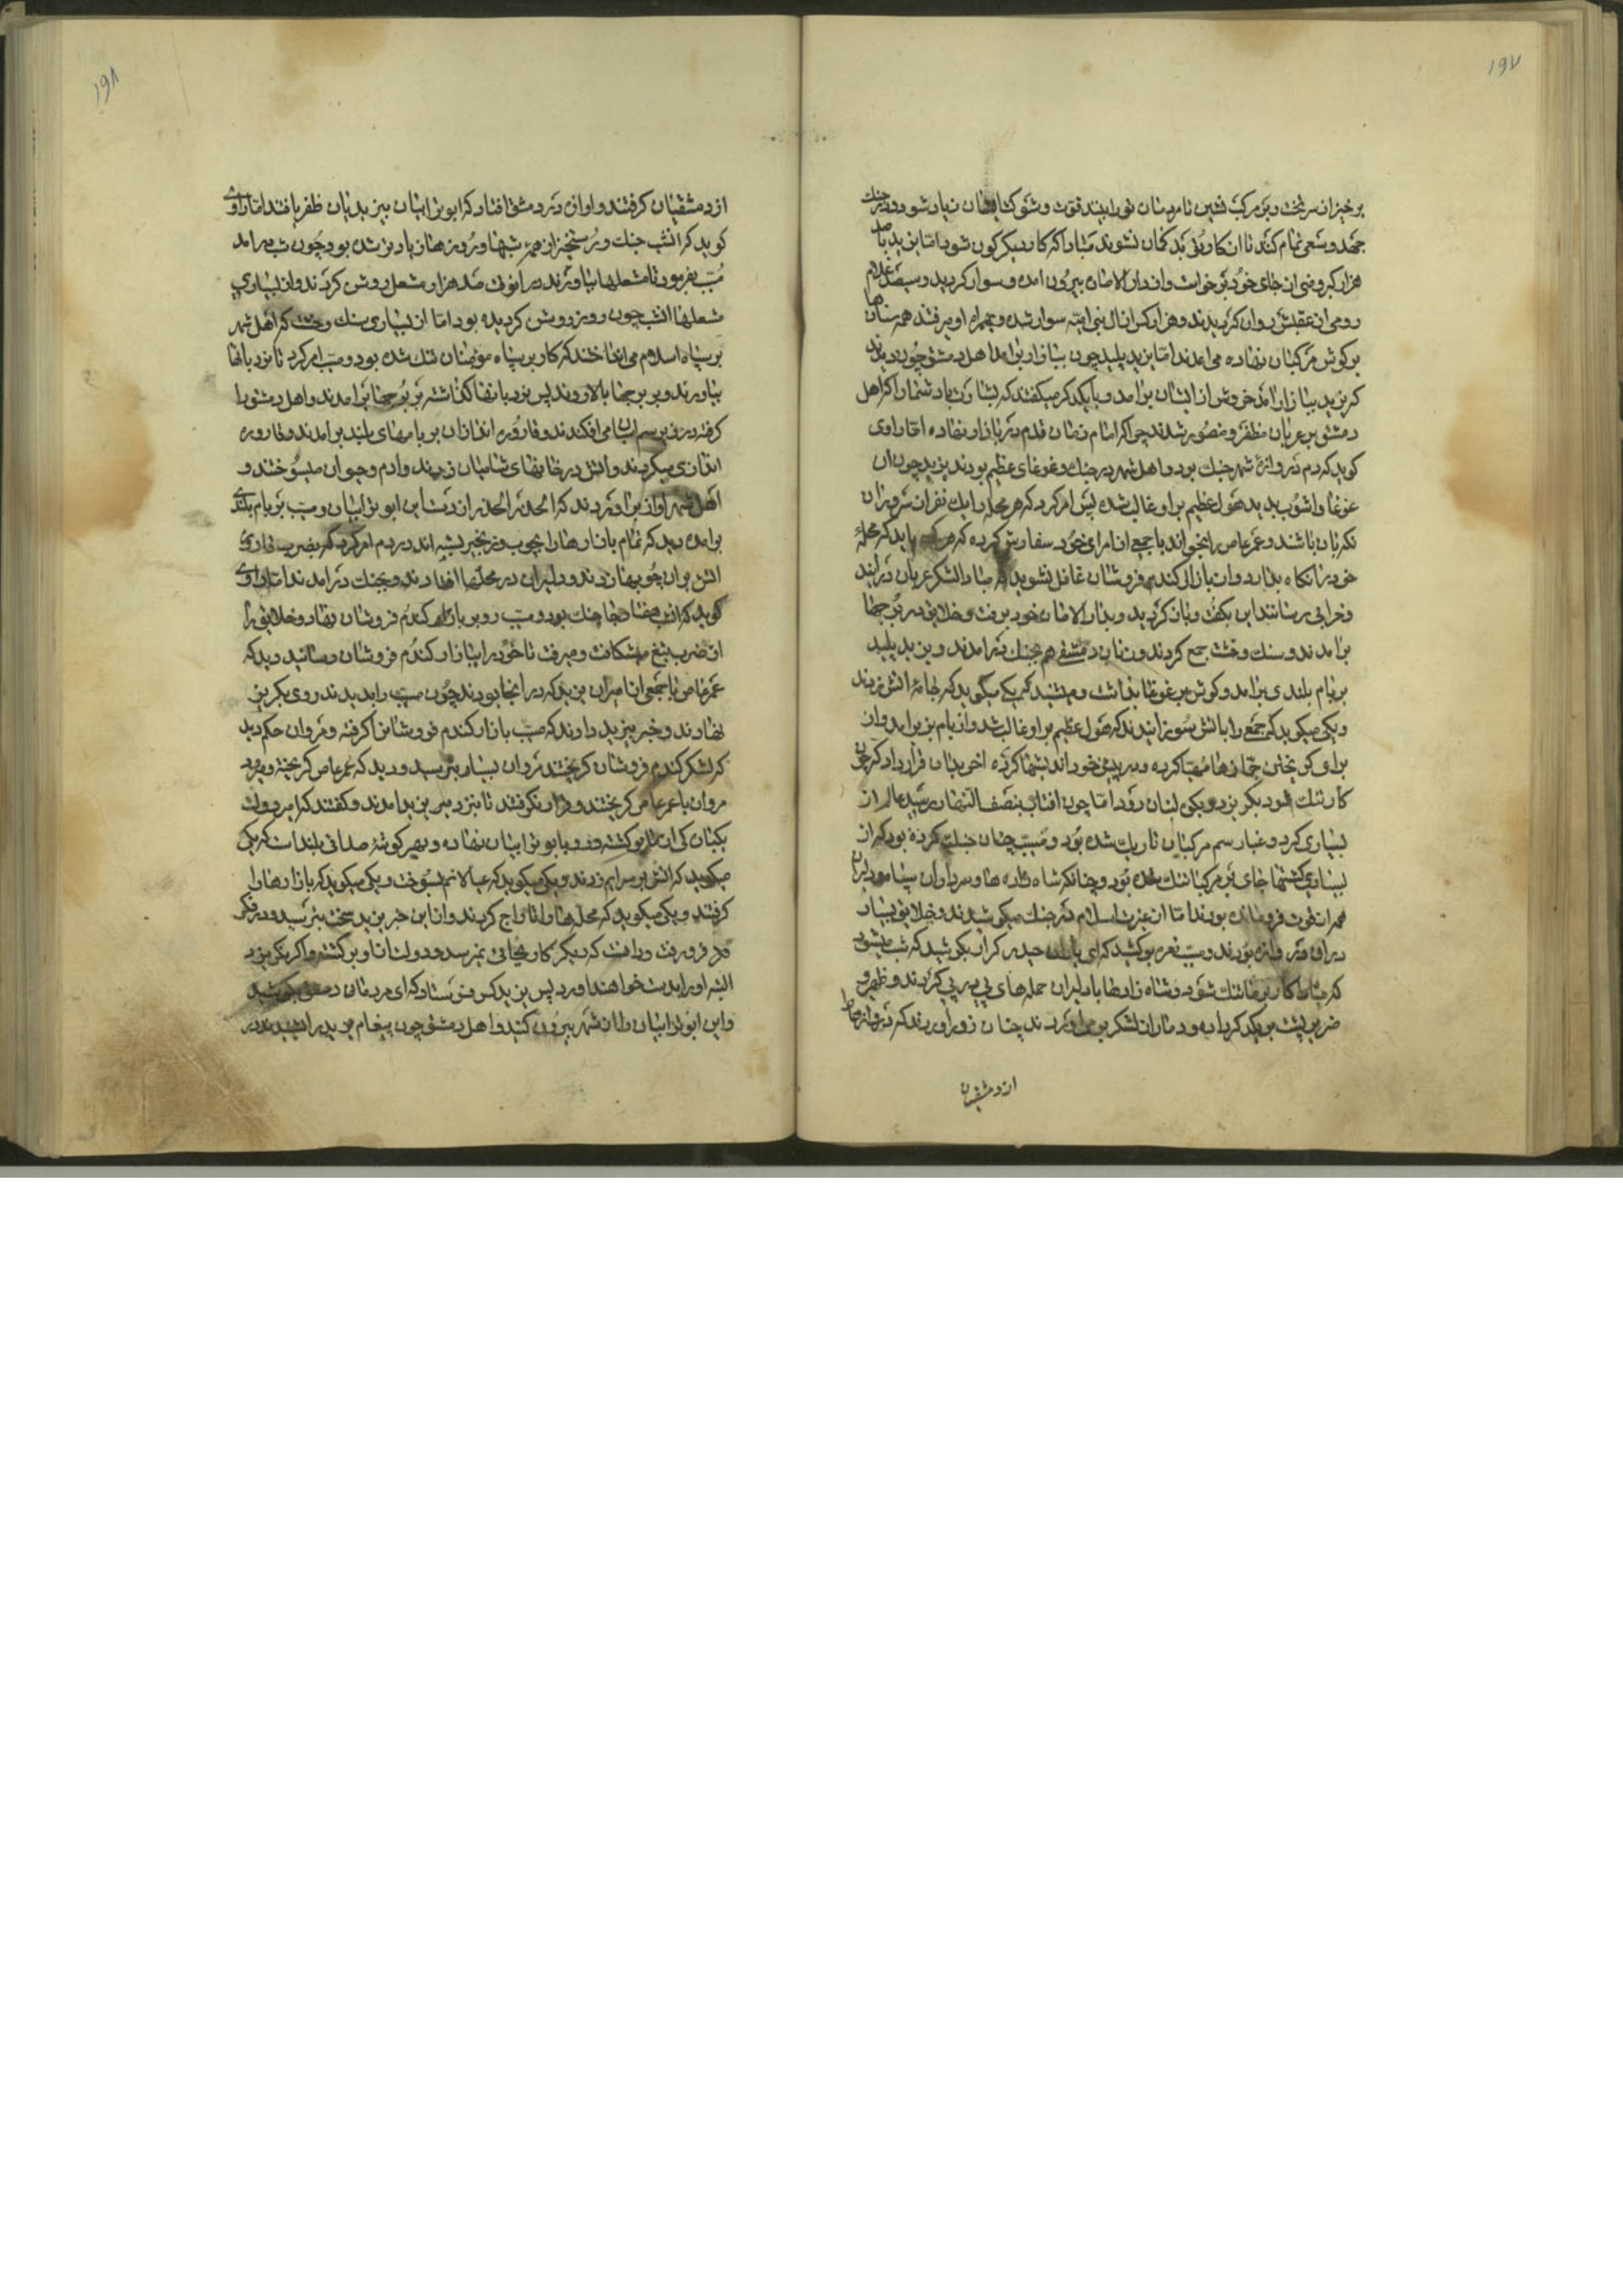 ۱۹۷
برخیز از سر تخت و بر مرکب نشین تا مردمان تو را بینند قوت و شوکت ایشان زیاد شود و در جنک
جهد و سعی تمام کنند تا ان کار وقتی بد کمان نشوند مبادا که کار دیکرکون شود اما یزید با صد
هزار کبر و منی از جای خود برخواست و از دار الاماره بیرون امده و سوار کردید و سیصد غلام
رومی از عقبش روان کردیدند و هزار کس از ال بنی امیه سوار شده و بهمراه او میرفتند همه سنان ها
بر کوش مرکبان نهاده می امدند اما یزید پلید چون ببازار برامد اهل دمشق چون دیدند
که یزید ببازار امد خروش از ایشان برامد و با یکدکر میکفتند که بشارت باد شما را که اهل
دمشق بر عربان مظفر و منصور شدند چرا که امام زمان قدم در بازار نهاده اما راوی
کوید که دم دروازهٔ شهر جنک بود و اهل شهر در جنک و غوغای عظیم بودند یزید چون ان
غوغا و اشوب بدید هول عظیم بر او غالب شده پس امر کرد که هر محله را یک نفر از سروران
نکهبان باشند و عمر عاص را بخواند با جمعی از امرای خود سفارش کرده که باید که محلهٔ
خود را نکاه بدارد و از بازار کندم فروشان غافل نشوید مبادا لشکر عربان درایند
و خرابی رسانند این بکفت و باز کردید و بدار الاماره خود برفت و خلایق در برجها
برامدند و سنک و خشت جمع کردند و زنان دمشقی هم بجنک درامدند و یزید پلید
بر بام بلندی برامد و کوش بر غوغا بداشت و میشنید که یکی میکوید که بخانهٔ اتش زدند
و یکی میکوید که جمع را باتش سوزانیدند که هول عظیم بر او غالب شد و از بام بزیر امد و از
برای کریختن جمازها مهیا کرده و در پیش خود اندیشها کرده اخر بدان قرار داد که چون
کار تنک شود بکریزد و بکی لسان رود اما چون افتاب بنصف النهار رسید عالم از
بسیاری کرد و غبار سم مرکبان تاریک شده بود و مسیب چنان جنک کرده بود که از
بسیاری کشتها جای بر مرکبان تنک شده بود و چنانکه شاه زاده ها و سرداران سپاه و دلیران
همه از قوت فرومانده بودند اما از عزت اسلام در جنک میکوشیدند و خلایق بسیار
در ان دروازه بودند و مسیب نعره بر کشید که ای یاران حیدر کرار بکوشید که شب میشود
که مبادا کار بر ما تنک شود و شاه زادها با دلیران حمله های پی در پی کردند و ظهیر و
ضریر پشت بر یکدکر داده و دمار از لشکر بر می اوردند چنان زور اوردند که دروازها را
از دمشقیان
۱۹۸
از دمشقیان کرفتند و اوازه در دمشق افتاد که ابو ترابیان بر یزیدیان ظفر یافتند اما راوی
کوید که انشب جنک و رستخیز از همه شبها و روزها زیادتر شده بود چون شب درامد
مسیب بفرمود تا مشعلها بیاورند در انوقت صد هزار مشعل روشن کردند و از بسیاری
مشعلها انشب چون روز روشن کردیده بود اما از بسیاری سنک و خشت که اهل شهر
بر سپاه اسلام می انداختند که کار بر سپاه مومنان تنک شده بود و مسیب امر کرد تا نردبانها
بیاورند و بر برجها بالا روند پس نردبانها کذاشته بر برجها برامدند و اهل دمشق را
کرفته در زیر سم اسبان می افکندند و قاروره اندازان بر بامهای بلند برامدند و قاروره
اندازی میکردند و اتش در خانهای شامیان زدند و ادم و حیوان میسوختند و
اهل شهر اواز براوردند که الحذر الحذر از دست این ابو ترابیان و مسیب بر بام بلندی
برامده دید که تمام بازارها را بچوب و زنجیر بسته اند در دم امر کرد که بضرب
اتش بر ان چوبها زدند و دلیران در محلها افتادند و بجنک درامدند اما راوی
کوید که انشب هفتاد جا جنک بود و مسیب رو بر بازار کندم فروشان نهاد و خلایق را
از ضرب تیغ میشکافت و میرفت تا خود را ببازار کندم فروشان رسانید دید که
عمر عاص با جمعی از امیران یزید که در انجا بودند چون مسیب را بدیدند روی بکریز
نهادند و خبر بیزید دادند که مسیب بازار کندم فروشان را کرفته و مروان حکم دید
که لشکر کندم فروشان کریختند مروان بسیار بترسید و دید که عمر عاص کریخته و میرود
مروان با عمر عاص کریختند و قرار نکرفتند تا بنزد یزید امدند و کفتند که امیر دولت
یکیان کی از تو برکشته و رو بابو ترابیان نهاده و بهر کوشهٔ صدائی بلند است که یکی
میکوید که اتش بر سرایم زدند و یکی میکوید که عیالانم بسوخت و یکی میکوید که بازارها را
کرفتند و یکی میکوید که محله ها را تاراج کردند و از این خبر یزید سخت بترسید و در فکر
دور فرو رفت و دانست که دیکر کار بجائی نمیرسد و دولت از او برکشته و اکر نکریزد
البته او را بدست خواهند اورد پس یزید کس فرستاد که ای مردمان دمشق بکوشید
و این ابو ترابیان را از شهر بیرون کنید و اهل دمشق چون پیغام یزید را شنیدند